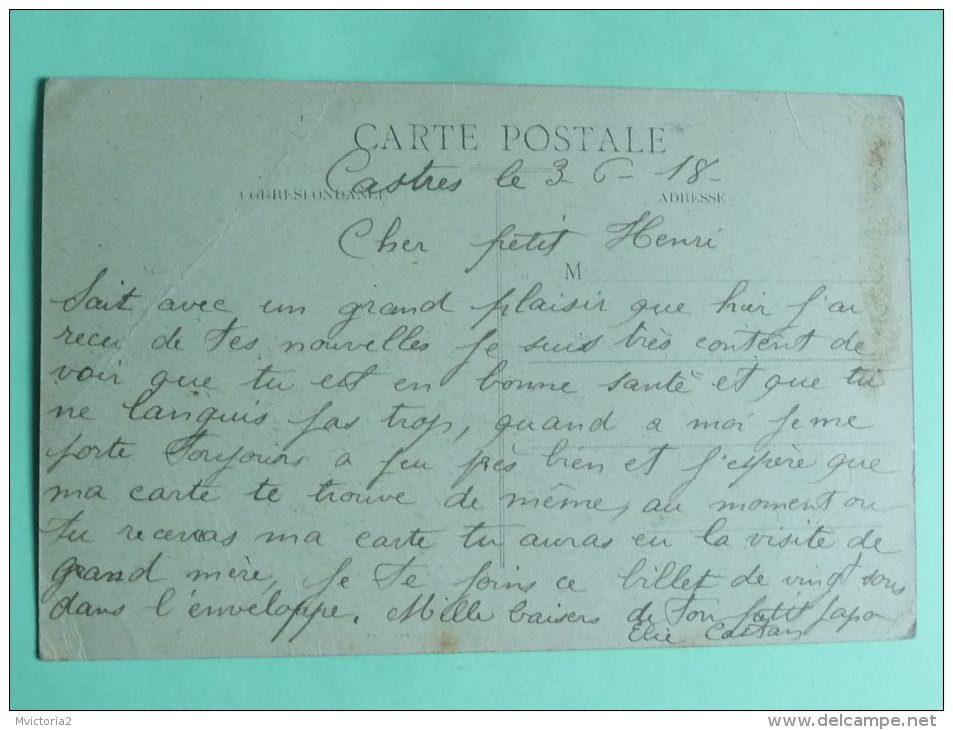 CARTE POSTALE
Castres le 3-6-18-
CORRESPONDANCE
ADRESSE
Cher petit Henri
M
Sait avec un grand plaisir que hier j'ai
recu de tes nouvelles je suis très content de
voir que tu est en bonne santé et que tu
ne languis pas trop, quand a moi je me
porte toujours a peu près bien et j'espère que
ma carte te trouve de même, au moment ou
tu receras ma carte tu auras eu la visite de
grand mère, je te joins ce billet de vingt sous
dans l'enveloppe. Mille baisers de ton petit papa
Elie
Mvictoria2
delcampe.net